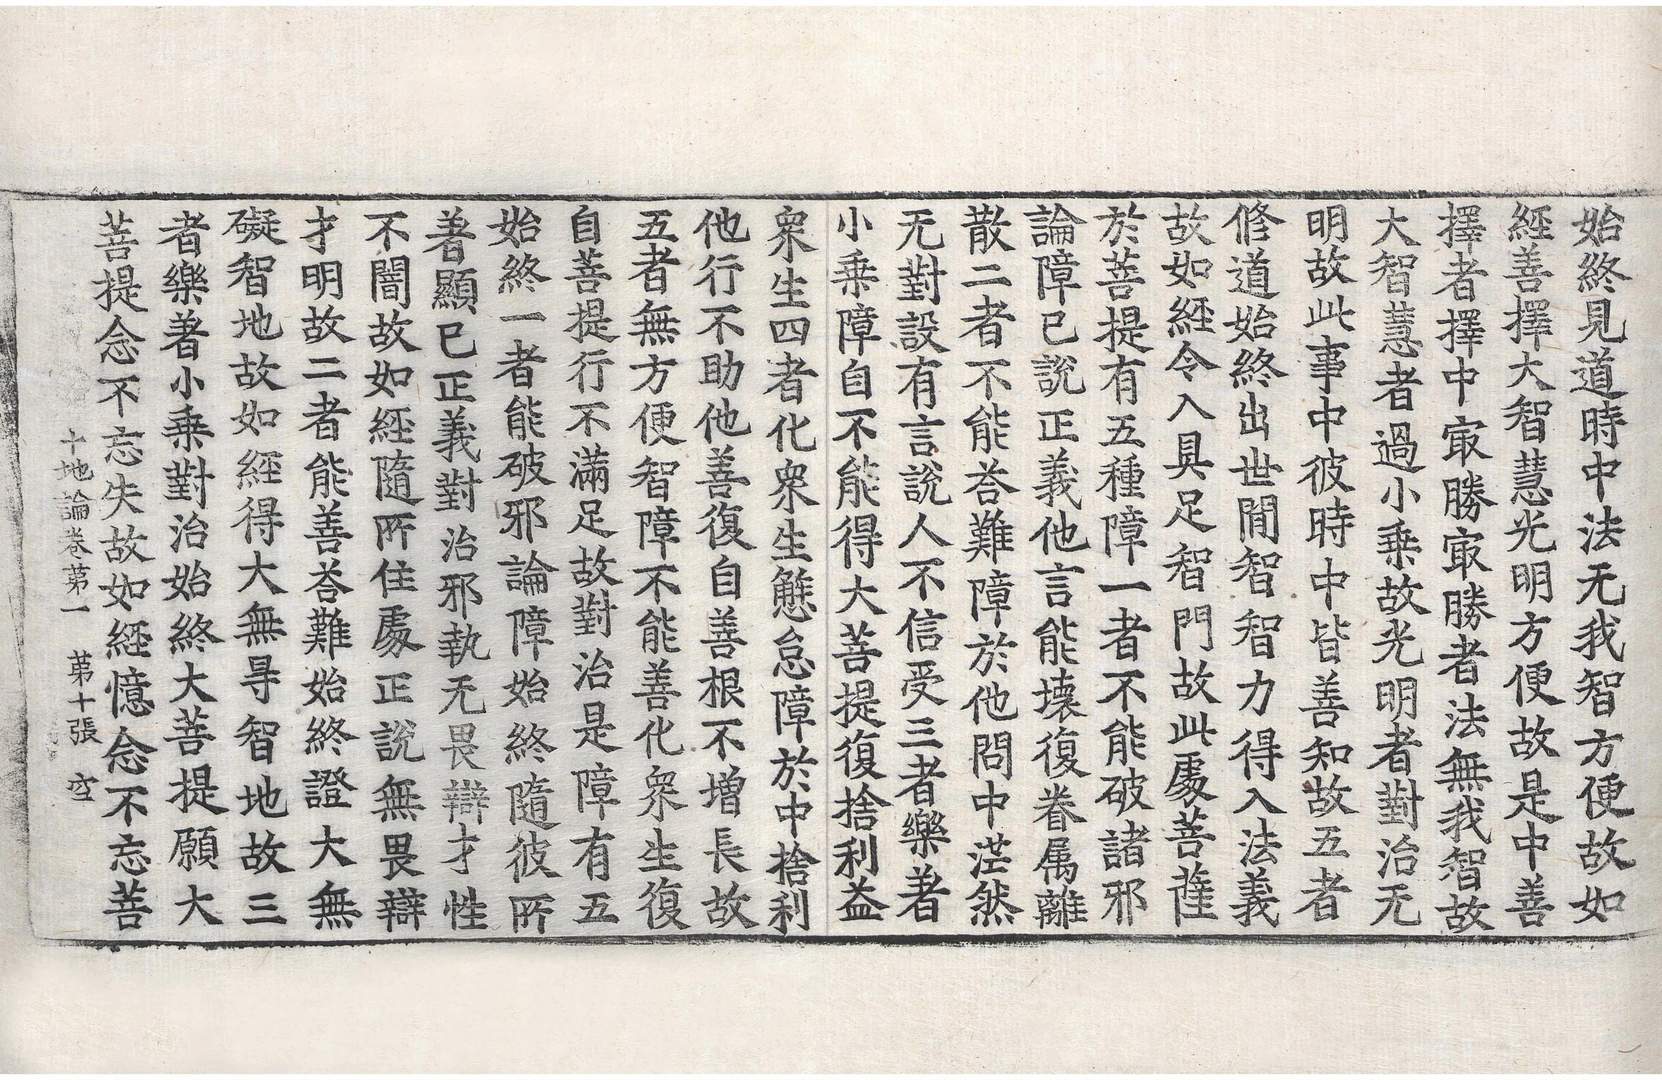 始終見道時中法无我智方便故如
經善擇大智慧光明方便故是中善
擇者擇中㝡勝㝡勝者法無我智故
大智慧者過小乗故光明者對治无
明故此事中彼時中皆善知故五者
修道始終出世閒智智力得入法義
故如經令入具足智門故此處菩薩
於菩提有五種障一者不能破諸邪
論障已說正義他言能壞復眷属離
散二者不能荅難障於他問中茫然
无對設有言說人不信受三者樂著
小乗障自不能得大菩提復捨利益
衆生四者化衆生懈怠障於中捨利
他行不助他善復自善根不增長故
五者無方便智障不能善化衆生復
自菩提行不滿足故對治是障有五
始終一者能破邪論障始終隨彼所
著顯已正義對治邪執无畏辯才性
不闇故如經隨所住處正說無畏辯
才明故二者能善荅難始終證大無
礙智地故如經得大無㝵智地故三
者樂著小乗對治始終大菩提願大
菩提念不忘失故如經憶念不忘菩
十地論卷第一 第十張 空